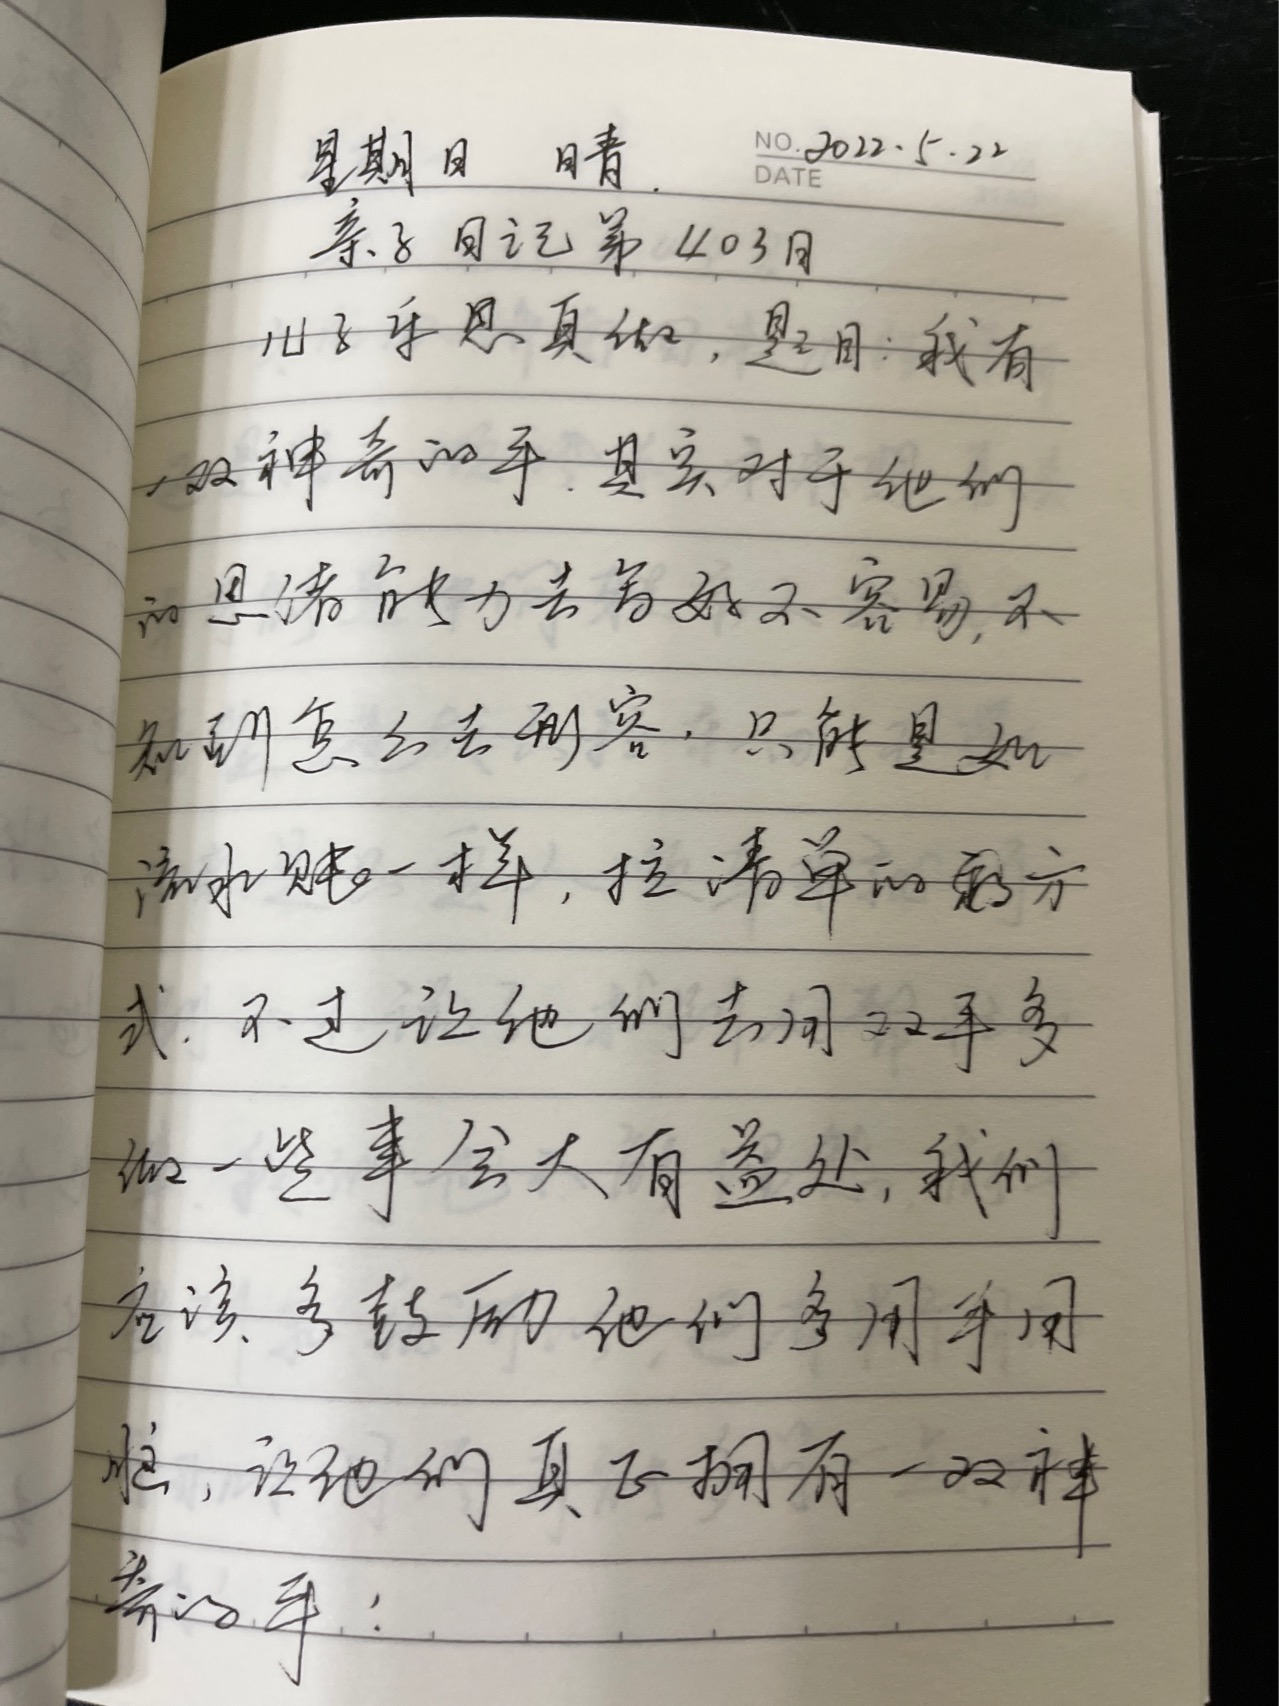 星期日 晴.
NO. 2022.5.22
DATE
亲子日记第403日
儿子手思真做，题目：我有
一双神奇的手.其实对于他们
的思绪能力去写好不容易,不
知到怎么去形容.只能是如
流水账一样，拉清单的形方
式.不过让他们去用双手多
做一些事会大有益处,我们
应该多鼓励他们多用手用
脑，让他们真正拥有一双神
奇的手!